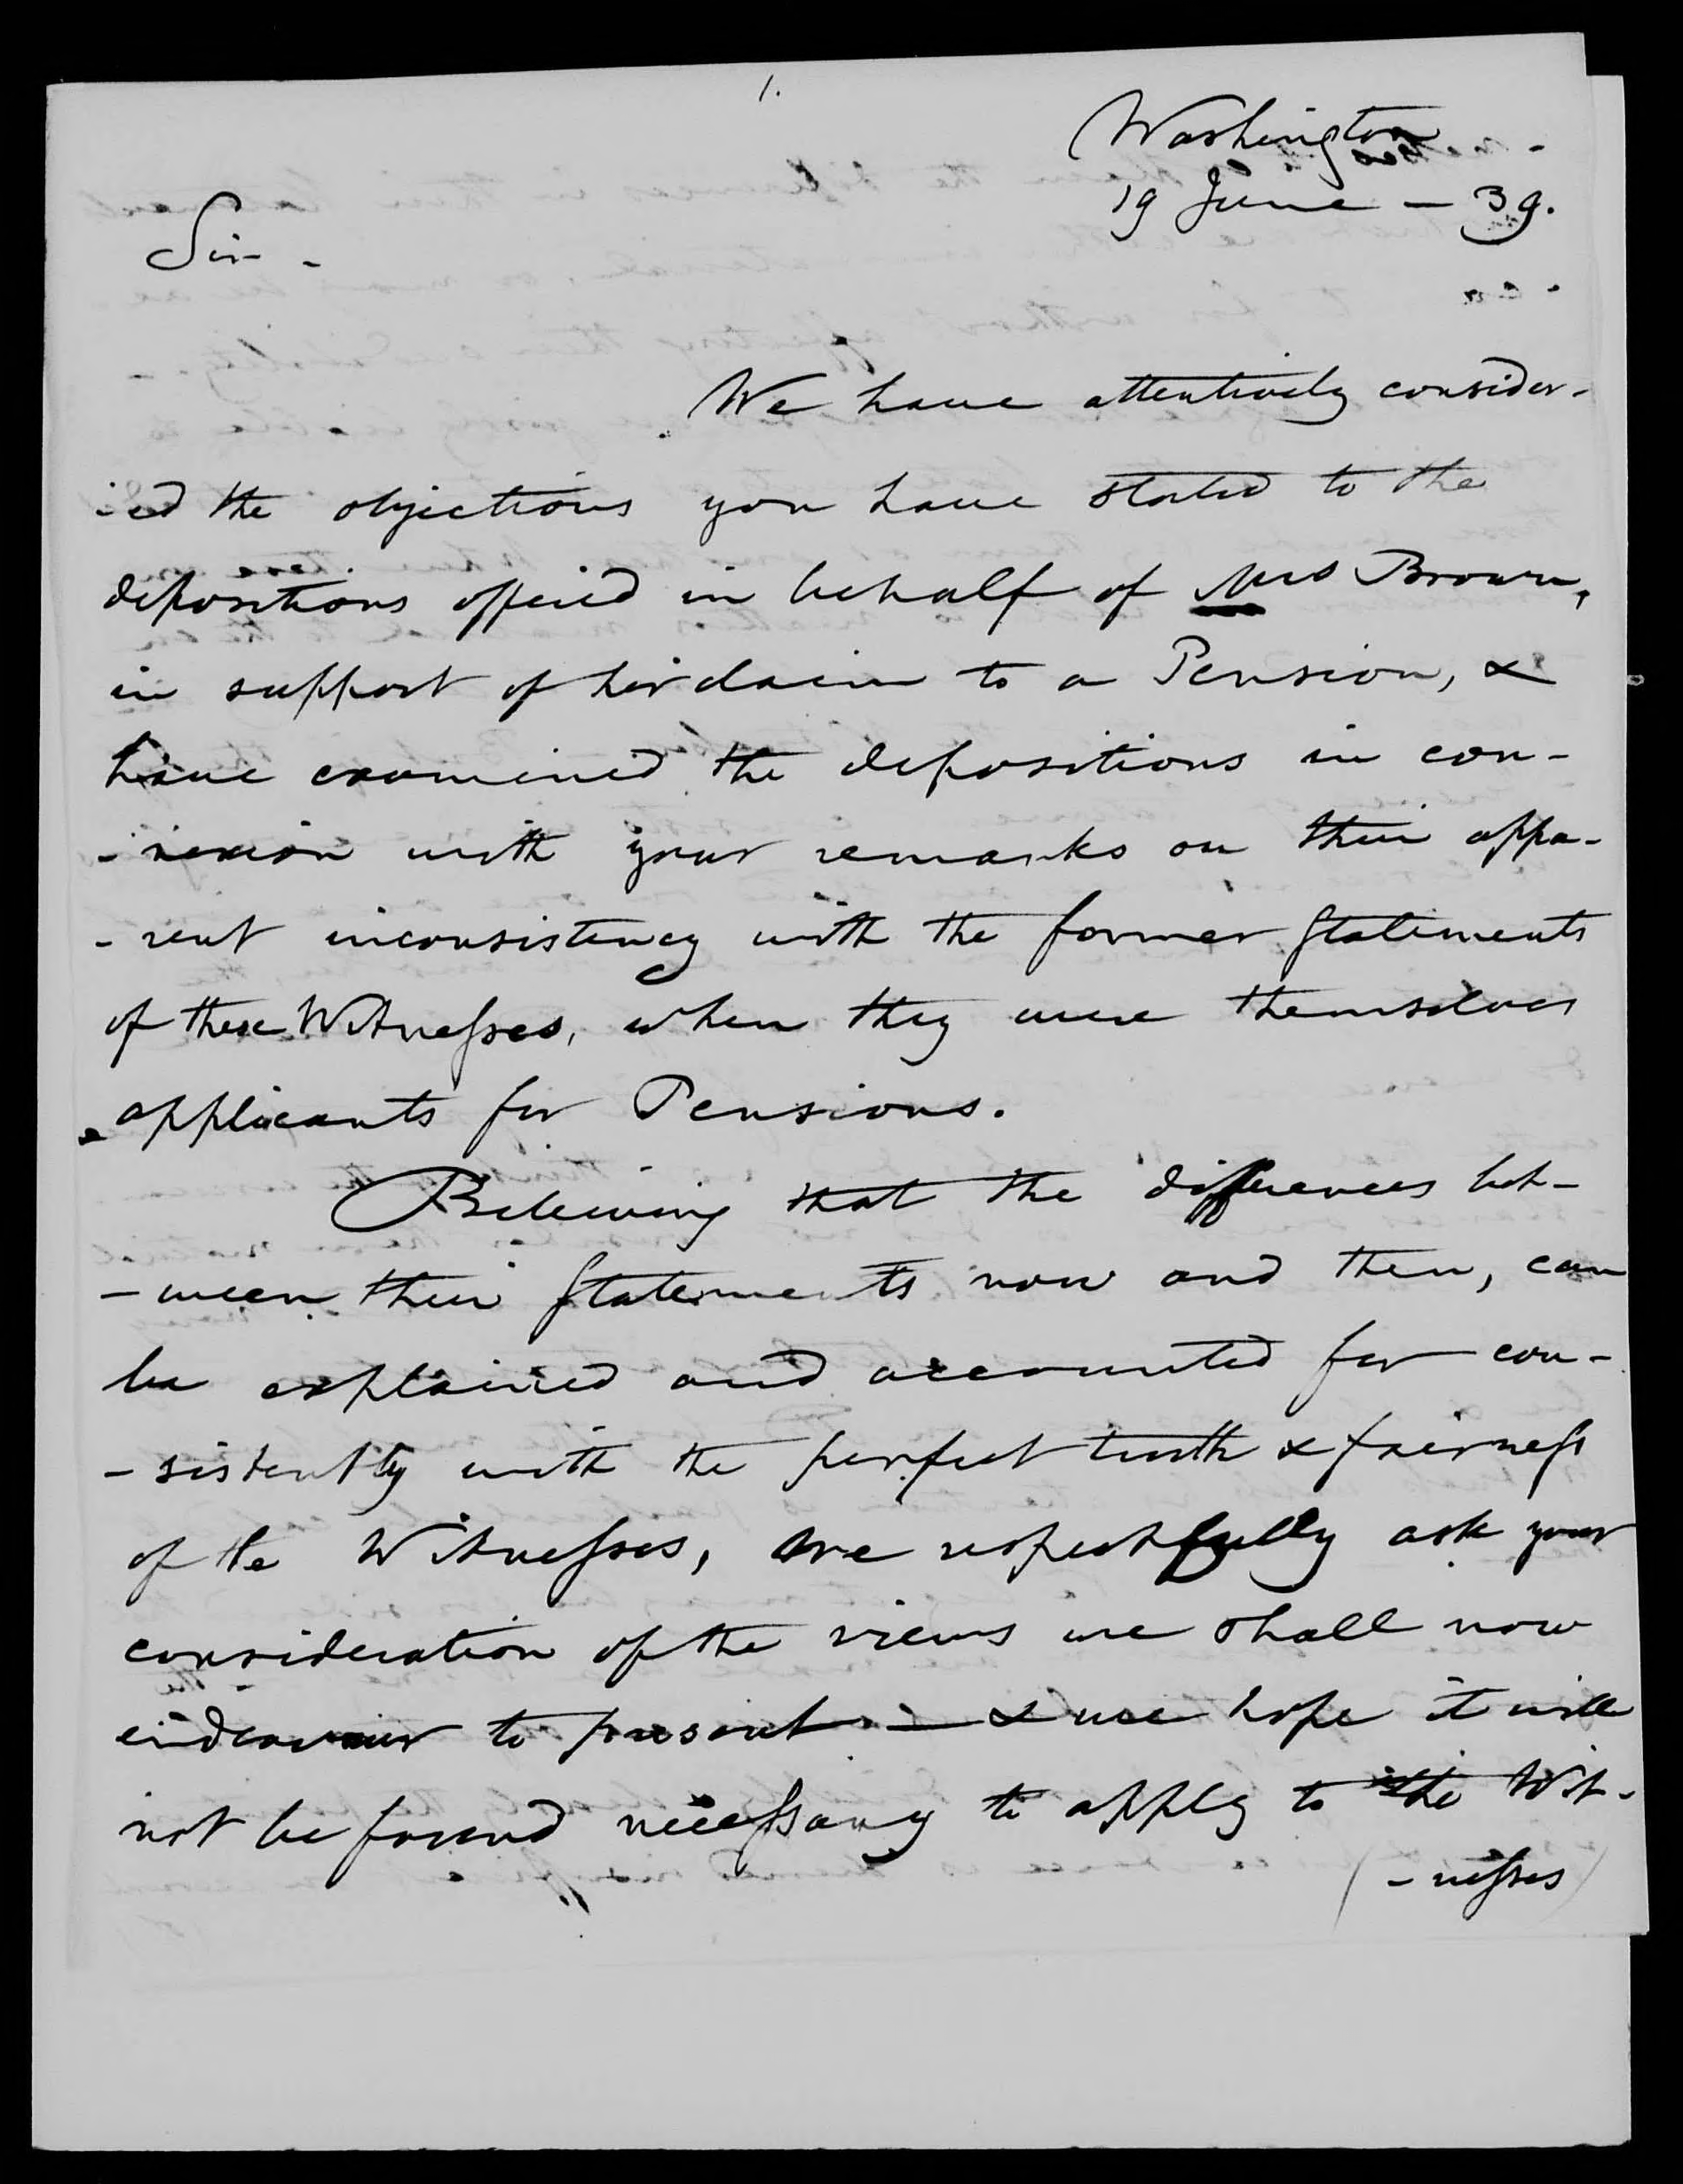 1.
Washington
19 June - 39.
Sir -
We have attentively consider-
-ed the objections you have stated to the
depositions offered in behalf of Mrs Brown,
in support of her claim to a Pension, &
have examined the depositions in con-
-nexion with your remarks on their appa-
-rent inconsistency with the former Statements
of these Witnesses, when they were themselves
applicants for Pensions.
Believing that the differences bet-
-ween their Statements now and then, can
be explained and accounted for con-
-sistently with the perfect truth & fairness
of the Witnesses, we respectfully ask your
consideration of the views we shall now
endeavour to present - & we hope it will
not be found necessary to apply to the Wit-
-nesses